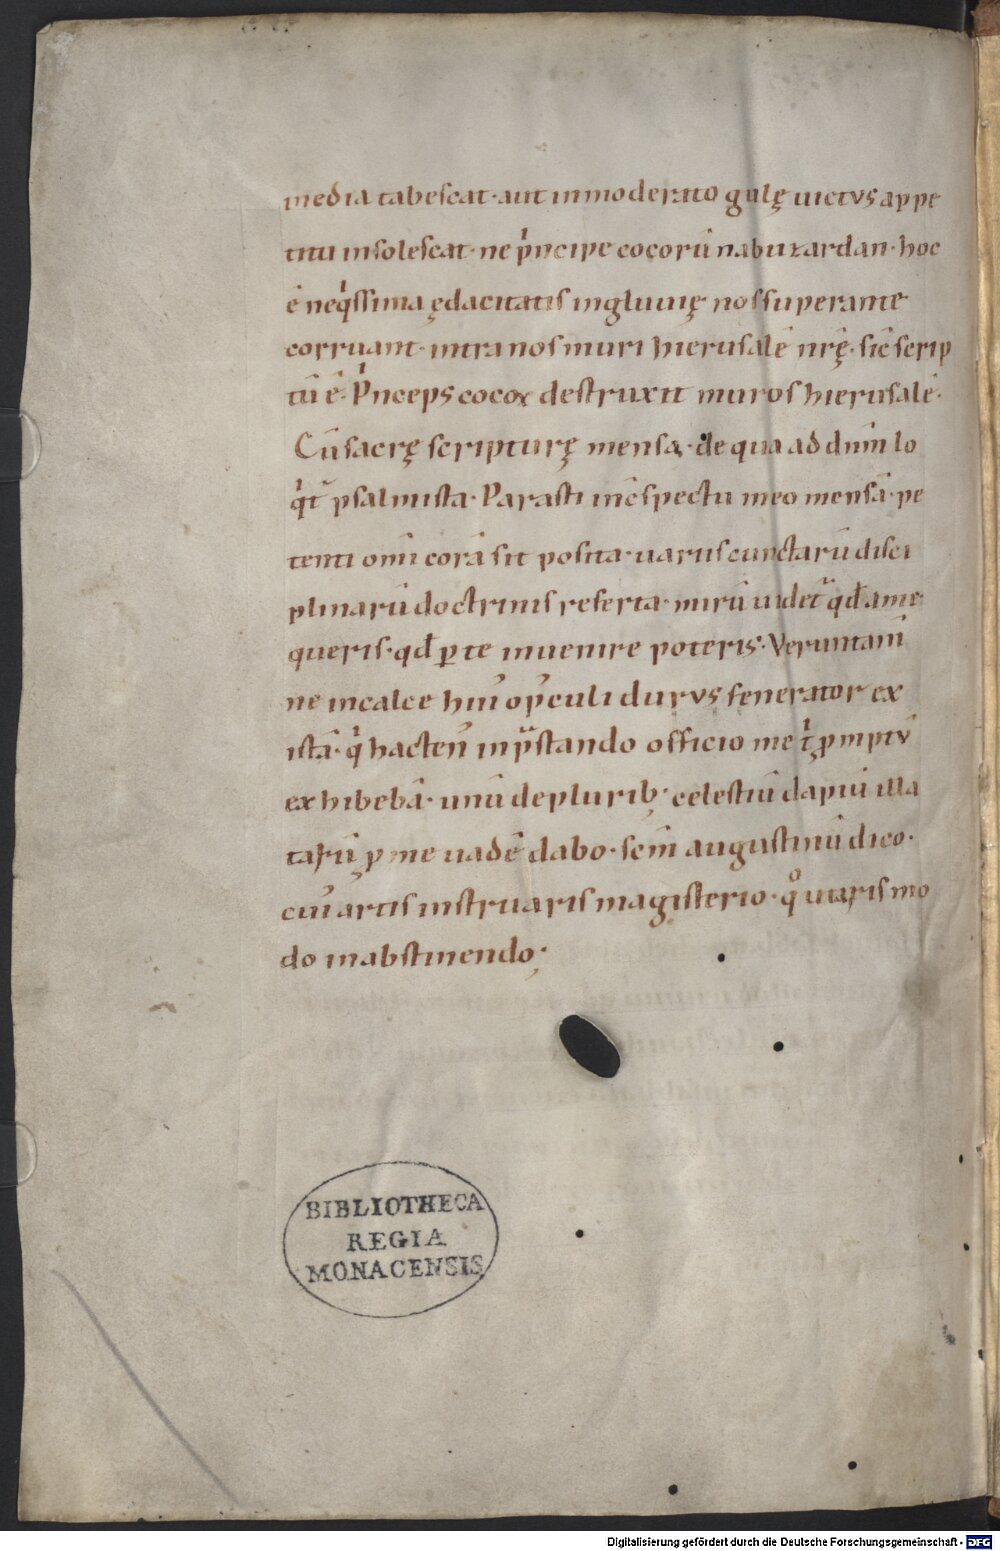 media tabescat · aut inmoderato gulę victus appe
titu insolescat · ne pͥncipe cocorū nabuzardan · hoc
ē neqͥssima ędacitatis ingluuię nos superante
corruant · intra nos muri hierusalē nr̄ę · sic̄ scrip
tū ē · Pͥnceps cocoꝝ destruxit muros hierusalē ·
Cū sacrę scripturę mensa · de qua ad dn̄m lo
qͥt᷑ psalmista · Parasti in c̄spectu meo mensā · pe
tenti om̄i corā sit posita · uariis cunctarū disci
plinarū doctrinis referta · mirū uidet᷑ qͥd a me
queris · qđ ꝑ te inuenire poteris · Veruntam̄
ne in calce huiꝰ opꝰculi durus fenerator ex
istā · qͥ hactenꝰ in pͣstando officio me ꝓmptū
exhibebā · unū de plurib; celestiū dapiū illa
tarū ꝓ me uadē dabo · sc̄m augustinū dico ·
cuiꝰ artis instruaris magisterio · qͦ utaris mo
do in abstinendo;
BIBLIOTHECA
REGIA
MONACENSIS
Digitalisierung gefördert durch die Deutsche Forschungsgemeinschaft - DFG